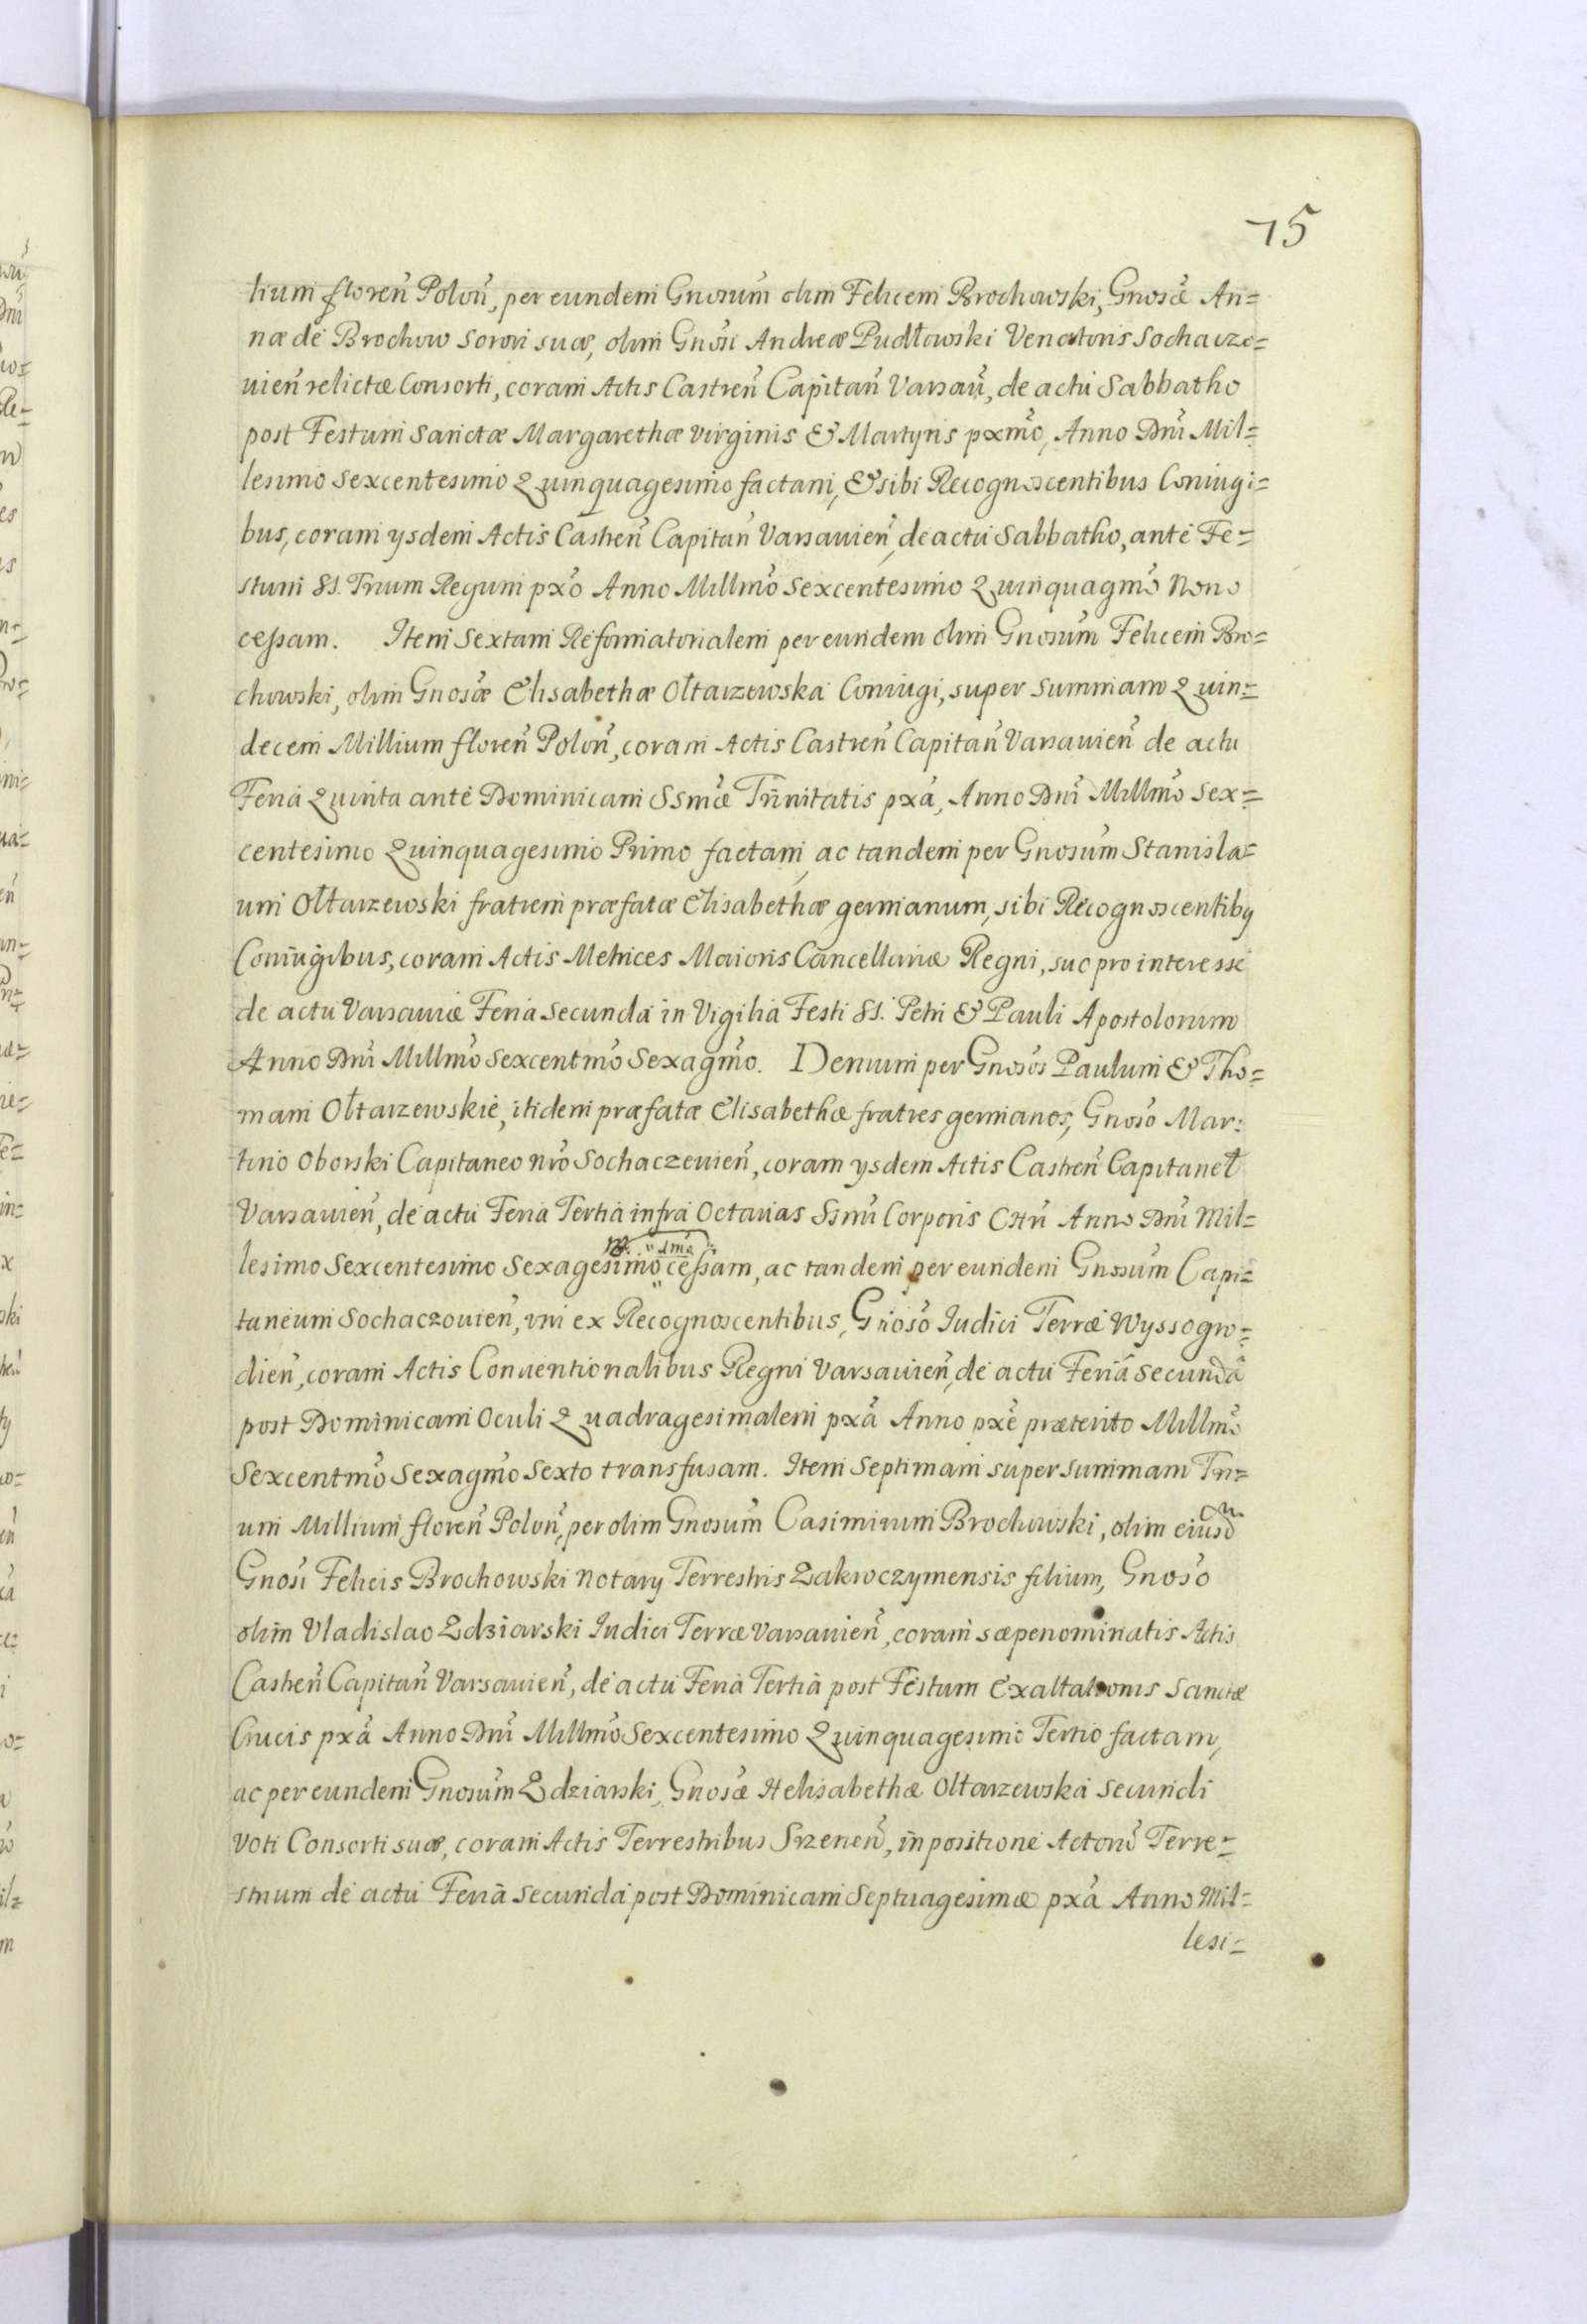 75
lium floren̄ Polon̄, per eundem Gnosum̄ olim Felicem Brochowski, Gnosǣ An=
næ de Brochow sorori suæ, olim Gnosi Andreæ Pudłowski Venatoris Sochacze=
uien̄ relictæ Consorti, coram Actis Castren̄ Capitan̄ Varsau̅, de actu Sabbatho
post Festum Sanctæ Margarethæ Virginis & Martyris pxmō, Anno Dnī Mil=
lesimo Sexcentesimo Quinquagesimo factam, & sibi Recognoscentibus Coniugi=
bus, coram ysdem Actis Castren̄ Capitan̄ Varsauien̄, de actu Sabbatho, ante Fe=
stum SS. Trium Regum pxō Anno Millmō Sexcentesimo Quinquagmō Nono
cessam. Item Sextam Reformatorialem per eundem olim Gnosum̄ Felicem Bro=
chowski, olim Gnosǣ Elisabethæ Ołtarzewska Coniugi, super summam Quin=
decem Millium floren̄ Polon̄, coram Actis Castren̄ Capitan̄ Varsauien̄ de actu
Feria Quinta ante Dominicam SSmǣ Trinitatis pxā, Anno Dnī Millmō Sex=
centesimo Quinquagesimo Primo factam, ac tandem per Gnosum̄ Stanisla=
um Ołtarzewski fratrem præfatæ Elisabethæ germanum, sibi Recognoscentibq
Coniugibus, coram Actis Metrices Maioris Cancellariæ Regni, suo pro interesse
de actu Varsauiæ Feria Secunda in Vigilia Festi SS. Petri & Pauli Apostolorum
Anno Dnī Millmō Sexcentmō Sexagmō. Demum per Gnosōs Paulum & Tho=
mam Ołtarzewskie, itidem præfatæ Elisabethæ fratres germanos, Gnosō Mar:
tino Oborski Capitaneo nrō Sochaczeuien̄, coram ysdem Actis Castren̄ Capitanet
Varsauien̄, de actu Feria Tertia infra Octauas SSmī Corporis CHri Anno Dnī Mil=
lesimo Sexcentesimo Sexagesimo cessam, ac tandem per eundem Gnosum̄ Capi=
taneum Sochaczouien̄, vni ex Recognoscentibus, Gnosō Iudici Terræ Wyssogro=
dien̄, coram Actis Conuentionalibus Regni Varsauien̄, de actu Feriâ Secundâ
post Dominicam Oculi Quadragesimalem pxā Anno pxē præterito Millmō
Sexcentmō Sexagmō Sexto transfusam. Item Septimam super summam Tri=
um Millium floren̄ Polon̄, per olim Gnosum̄ Casimirum Brochowski, olim eiusd̄
Gnosi Felicis Brochowski Notarÿ Terrestris Zakroczymensis filium, Gnosō
olim Vladislao Zdziarski Iudici Terræ Varsauien̄, coram sæpenominatis Actis
Castren̄ Capitan̄ Varsauien̄, de actu Feria Tertia post Festum Exaltationis Sanctæ
Crucis pxā Anno Dnī Millmō Sexcentesimo Quinquagesimo Tertio factam,
ac per eundem Gnosum̄ Zdziarski, Gnosǣ Helisabethæ Ołtarzewska Secundi
Voti Consorti suæ, coram Actis Terrestribus Srzenen̄, in positione Actorū Terre=
strium de actu Feria Secunda post Dominicam Septuagesimæ pxā Anno Mil=
lesi=